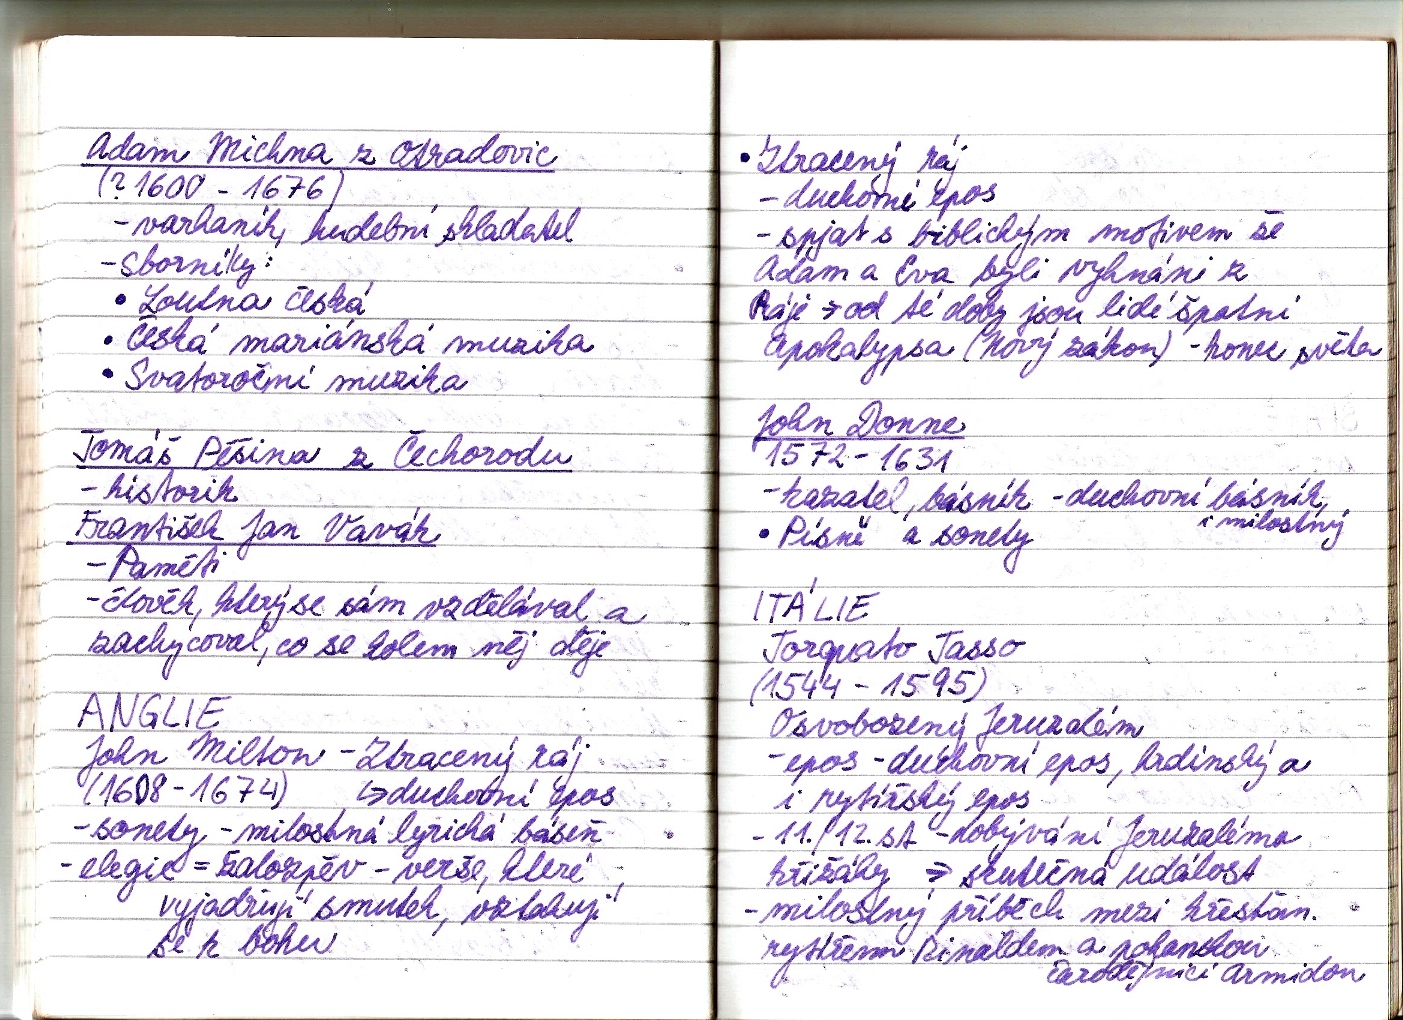 Adam Michna z Otradovic
(? 1600 - 1676)
- varhaník, hudební skladatel
- sborníky:
• Loutna česká
• Česká mariánská muzika
• Svatoroční muzika
Tomáš Pěšina z Čechorodu
- historik
František Jan Vavák
- Paměti
- člověk, který se sám vzdělával a
zachycoval, co se kolem něj děje
ANGLIE
John Milton - Ztracený ráj
(1608 - 1674) ↳ duchovní epos
- sonety - milostná lyrická báseň
- elegie = žalozpěv - verše, které
vyjadřují smutek, vztahují
se k bohu
• Ztracený ráj
- duchovní epos
- spjat s biblickým motivem že
Adam a Eva byli vyhnáni z
Ráje ⇒ od té doby jsou lidé špatní
Apokalypsa (Nový zákon) - konec světa
John Donne
1572 - 1631
- kazatel, básník - duchovní básník,
i milostný
• Písně a sonety
ITÁLIE
Torquato Tasso
(1544 - 1595)
Osvobozený Jeruzalém
- epos - duchovní epos, hrdinský a
i rytířský epos
- 11./12. st - dobývání Jeruzaléma
křižáky ⇒ skutečná událost
- milostný příběh mezi křesťan.
rytířem Rinaldem a pohanskou
čarodějnicí Armidou